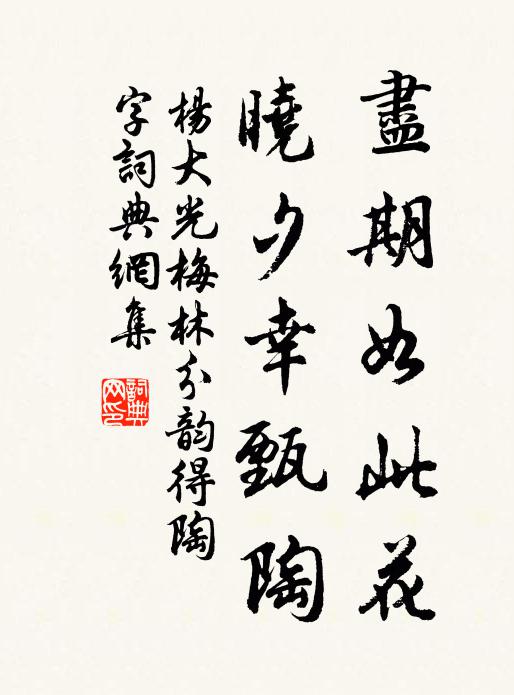 盡期如此花
曉夕幸甄陶
楊大光梅林分韵得陶
字詞典網集
詞典網印